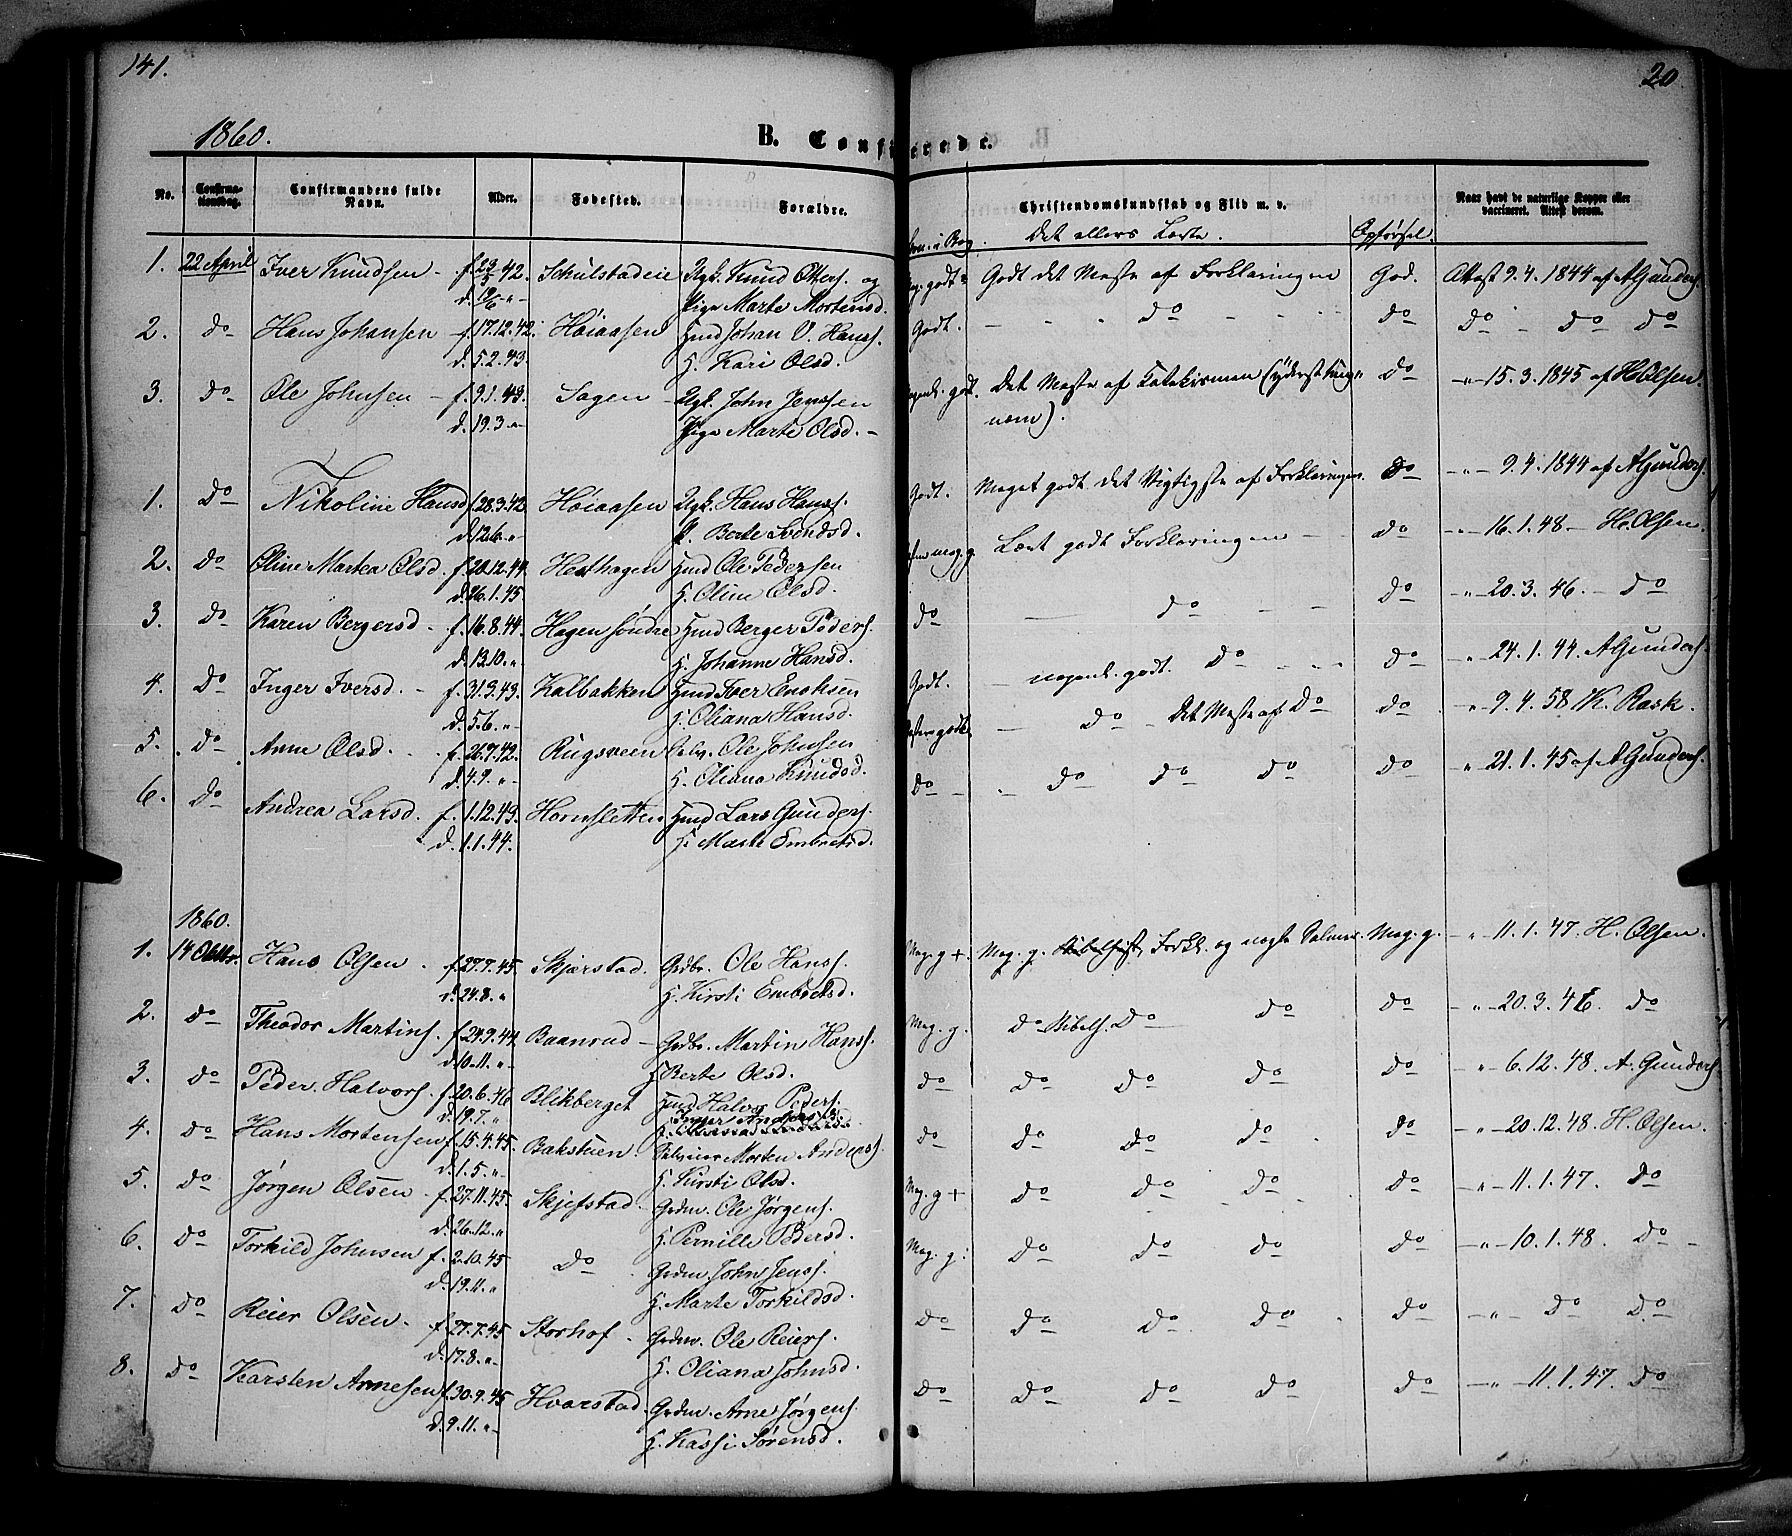 141.
20
1860.
B. Confirmerede.
No. Confirmationsdag. Confirmandens fulde Navn. Alder. Fødested. Forældre. Christendomskundskab og Flid m. v. Naar havt de naturlige Kopper eller vaccineret. Attest derom.
i Bog. Det ellers Lærte. Opførsel.
1. 22 April Iver Knudsen - f. 29/3 42. Schulstadeie Ugk. Knud Otters. og godt Godt det Meste af Forklaringen God. Attest 9.4.1844 af A Gunders.
d. 12/6 -"- Pige Marte Mortensd.
2. do Hans Johansen - f. 17.12.42. Høiaasen Hmd Johan V. Hanss. Godt. - - - do - - - do do - do do
d. 5.2.43. H. Kari Olsd.
3. do Ole Johnsen - f. 9.1.43. Sagen - Ugk. John Jenssen nogenl. godt. Det Meste af Katekismen (yderst tungnem). do -"- 15.3.1845 af H. Olsen.
d. 19.3 -"- Pige Marte Olsd. -
1. do Nikoline Hansd f. 28.3.42 Høiaasen Ugk. Hans Hanss. Godt. Meget godt det Vigtigste af Forklaringen. do -"- 9.4.1844 af A Gunders.
d. 12.6 -"- P. Berte Svendsd.
2. do Oline Martea Olsd. f. 20.12.44. Hesthagen Hmd Ole Pedersen meg. g. Lært godt Forklaringen - - do -"- 16.1.48 - H. Olsen.
d. 26.1.45 H. Oline Olsd.
3. do Karen Bergersd - f. 16.8.44. Hagen søndre Hmd Berger Peders. do - do - - do -"- 20.3.46. - do
d. 13.10. " H. Johanne Hansd.
4. do Inger Iversd. - f. 31.3.43. Kalbakken Hmd Iver Enoksen Godt. - nogenl. godt. do - - - do " 24.1.44. A Gunders.
d. 5.6. " H. Oliana Hansd.
5. do Anne Olsd. - f. 26.7.42. Rugsveen Selv. Ole Johnsen godt. - do - Det Meste af do do -"- 9.4.58. K. Rask.
d. 4.9. " H. Oliana Knudsd.
6. do Andrea Larsd. f. 1.12.43. Hornsletten Hmd Lars Gunders. do - - do do do do " 21.1.45 af A Gunders.
d. 1.1.44. H. Marte Embretsd.
1860.
1. 14 Octbr. Hans Olsen - f. 27.7.45 Skjærstad. Grdbr. Ole Hanss. Meg. g +. Meg. g. Bibelhist, Forkl. og nogle Salmer. Meg. g. -"- 11.1.47. H. Olsen.
d. 24.8. " H. Kirsti Embretsd.
2. do Theodor Martins. f. 29.9.44. Baanrud - Grdbr. Martin Hanss. Meg. g. do Bibelh. do do do -"- 20.3.46. do
d. 10.11. " H. Berte Olsd.
3. do Peder Halvors. f. 20.6.46 Blikberget Hmd Halvor Peders. do do do do do -"- 6.12.48. A. Gunders.
d. 19.7. " H. Inger Andersd.
4. do Hans Mortensen f. 15.4.45. Bakstuen. Selveier Morten Anderss. do do do do do -"- 20.12.48. H. Olsen.
d. 1.5. " H. Kirsti Olsd.
5. do Jørgen Olsen - f. 27.11.45. Skjefstad. Grdm. Ole Jørgens. Meg. g + do do do do -"- 11.1.47. do
d. 26.12. " H. Pernille Pedersd.
6. do Torkild Johnsen f. 2.10.45 do Grdm John Jenss. Meg. g. do do do do -"- 10.1.48. do -
d. 19.11. " H. Marte Torkildsd.
7. do Reier Olsen. f. 27.7.45 Storhof - Grdm. Ole Reiers. do do do do do -"- do do
d. 17.8. " H. Oliana Johnsd.
8. do Karsten Arnesen f. 30.9.45 Hvarstad. Grdm. Arne Jørgens. do do do do do -"- 11.1.47. do
d. 9.11. " H. Kassi Sørensd.